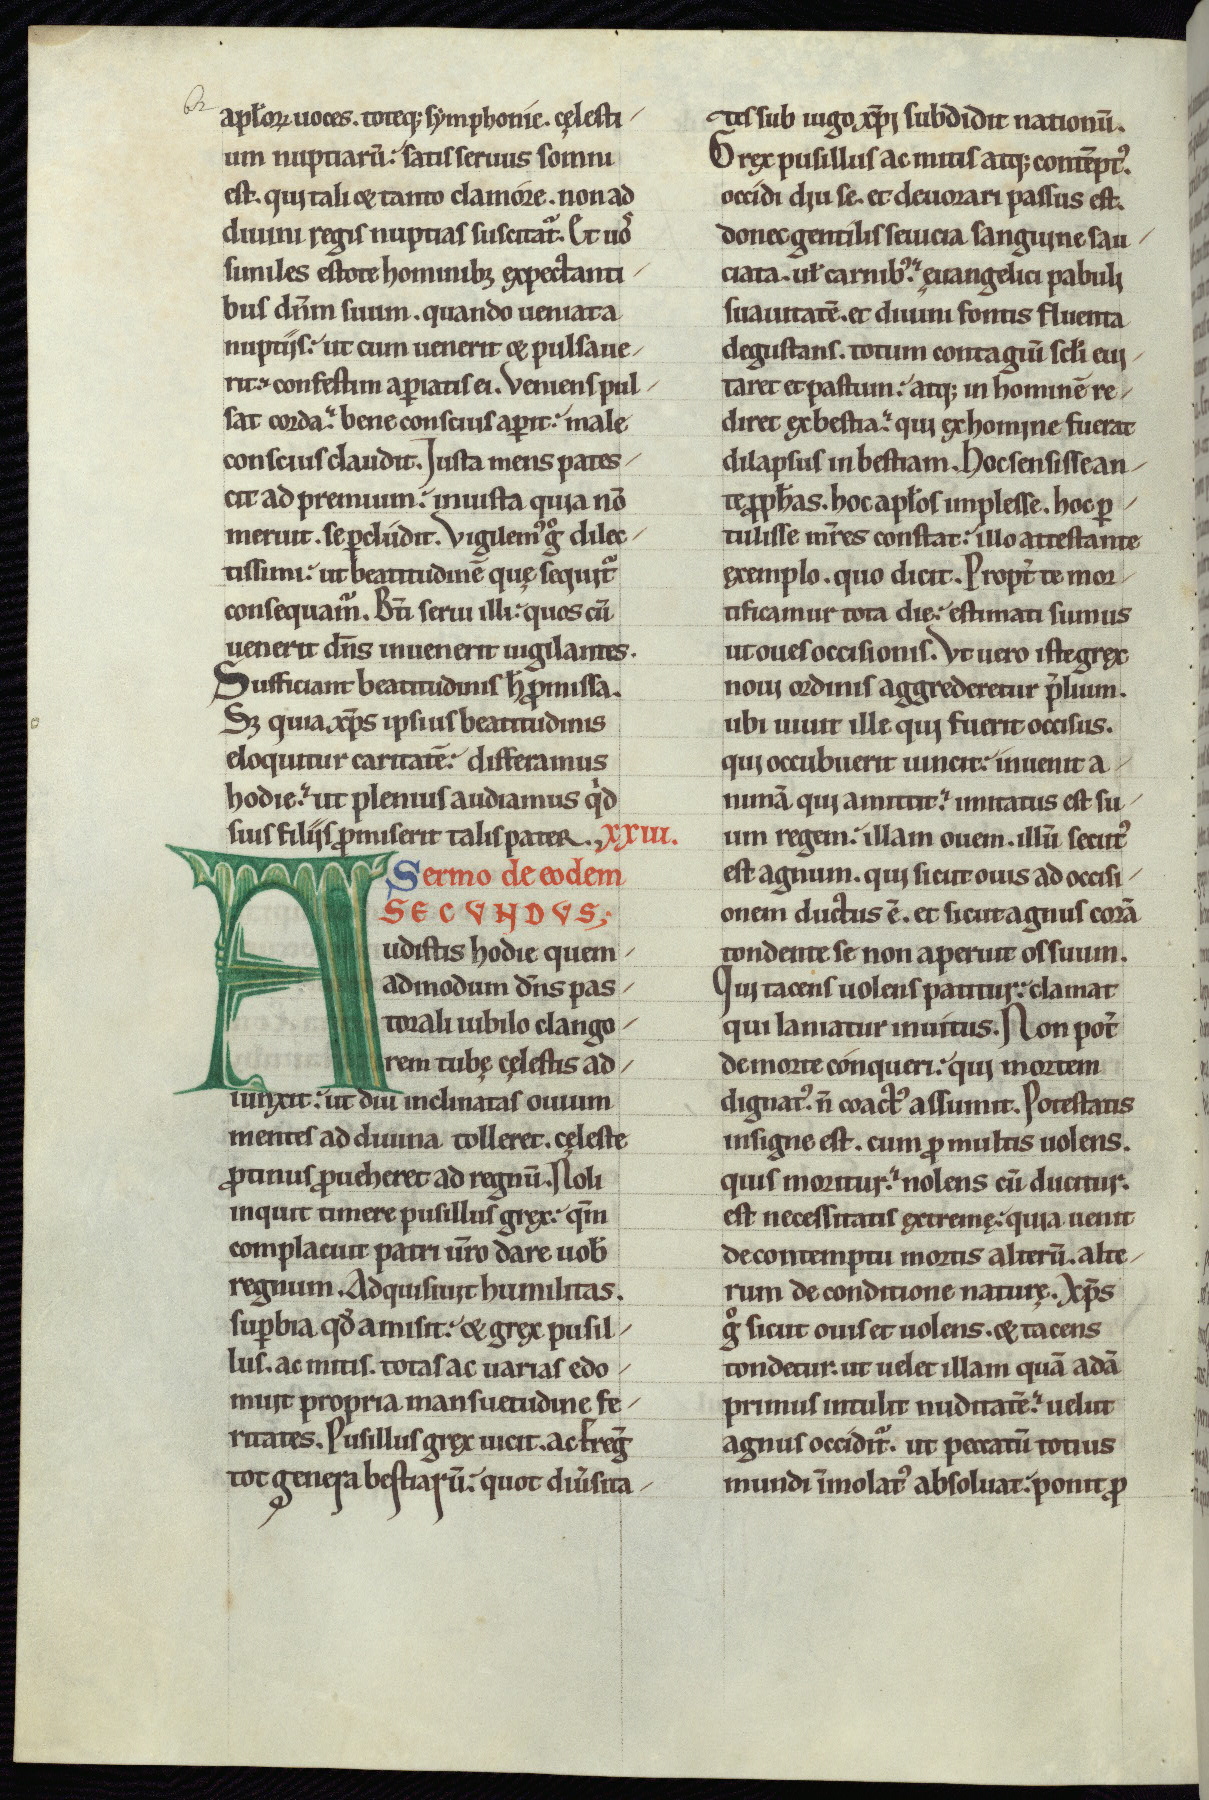 62
apl̄oꝝ uoces. toteq; sẏmphonie. cęlesti
um nuptiarū. satis seruus somni
est. qui tali & tanto clamore. non ad
diuini regis nuptias suscitat᷑. Et uos
similes estote hominibꝫ expectanti
bus dn̄m suum. quando ueniat a
nuptijs. ut cum uenerit & pulsaue
rit. confestim aꝑiatis ei. Veniens pul
sat corda. bene conscius aꝑit. male
conscius claudit. Iusta mens pates
cit ad premium. iniusta quia nō
meruit. se ꝑcludit. Vigilemꝰ gͦ dilec
tissimi. ut beatitudinē quę sequit᷑
consequam᷑. Bt̄i serui illi. quos cū
uenerit dn̄s inuenerit uigilantes.
Sufficiant beatitudinis h̄ ꝓmissa.
Sꝫ quia xp̄s ipsius beatitudinis
eloquitur caritatē. differamus
hodie. ut plenius audiamus qͥd
suis filijs ꝓmiserit talis pater. XXIII.
Sermo de eodem
SECUNDUS;
Audistis hodie quem
admodum dn̄s pas
torali iubilo clango
rem tubę cęlestis ad
iunxit. ut diu inclinatas ouium
mentes ad diuina tolleret. cęleste
ꝓtinus ꝓueheret ad regnū. Noli
inquit timere pusillus grex. qm̄
complacuit patri ūro dare uob̄
regnum. Adquisiuit humilitas.
suꝑbia qd̄ amisit. & grex pusil
lus. ac mitis. totas ac uarias edo
muit propria mansuetudine fe
ritates. Pusillus grex uicit. ac freḡ
tot genera bestiarū. quot diūsita
tes sub iugo xp̄i subdidit nationū.
Grex pusillus ac mitis atq; contēptꝰ.
occidi diu se. et deuorari passus est.
donec gentilis seuicia sanguine sau
ciata. ul̄ carnibꝰ. ęuangelici pabuli
suauitatē. et diuini fontis fluenta
degustans. totum contagiū scl̄i eui
taret et pastum. atq; in hominē re
diret ex bestia. qui ex homine fuerat
dilapsus in bestiam. Hoc sensisse an
te ꝓph̄as. hoc apl̄os implesse. hoc ꝑ
tulisse m̄res constat. illo attestante
exemplo. quo dicit. Propt̄ te mor
tificamur tota die. estimati sumus
ut oues occisionis. Vt uero iste grex
noui ordinis aggrederetur p̄lium.
ubi uiuit ille qui fuerit occisus.
qui occubuerit uincit. inuenit a
nimā qui amittit. imitatus est su
um regem. illam ouem. illū secutꝰ
est agnum. qui sicut ouis ad occisi
onem ductus ē. et sicut agnus corā
tondente se non aperuit os suum.
Qui tacens uolens patitur. clamat
qui laniatur inuitus. Non pot̄
de morte conqueri. qui mortem
dignatꝰ. n̄ coactꝰ assumit. Potestatis
insigne est. cum ꝓ multis uolens.
quis moritur. nolens cū ducitur.
est necessitatis extremę. quia uenit
de contemptu mortis alterū. alte
rum de conditione naturę. Xp̄s
gͦ sicut ouis et uolens. & tacens
tondetur. ut uelet illam quā adā
primus intulit nuditatē. uelut
agnus occidit᷑. ut peccatū totius
mundi īmolatꝰ absoluat. ponit ꝓ